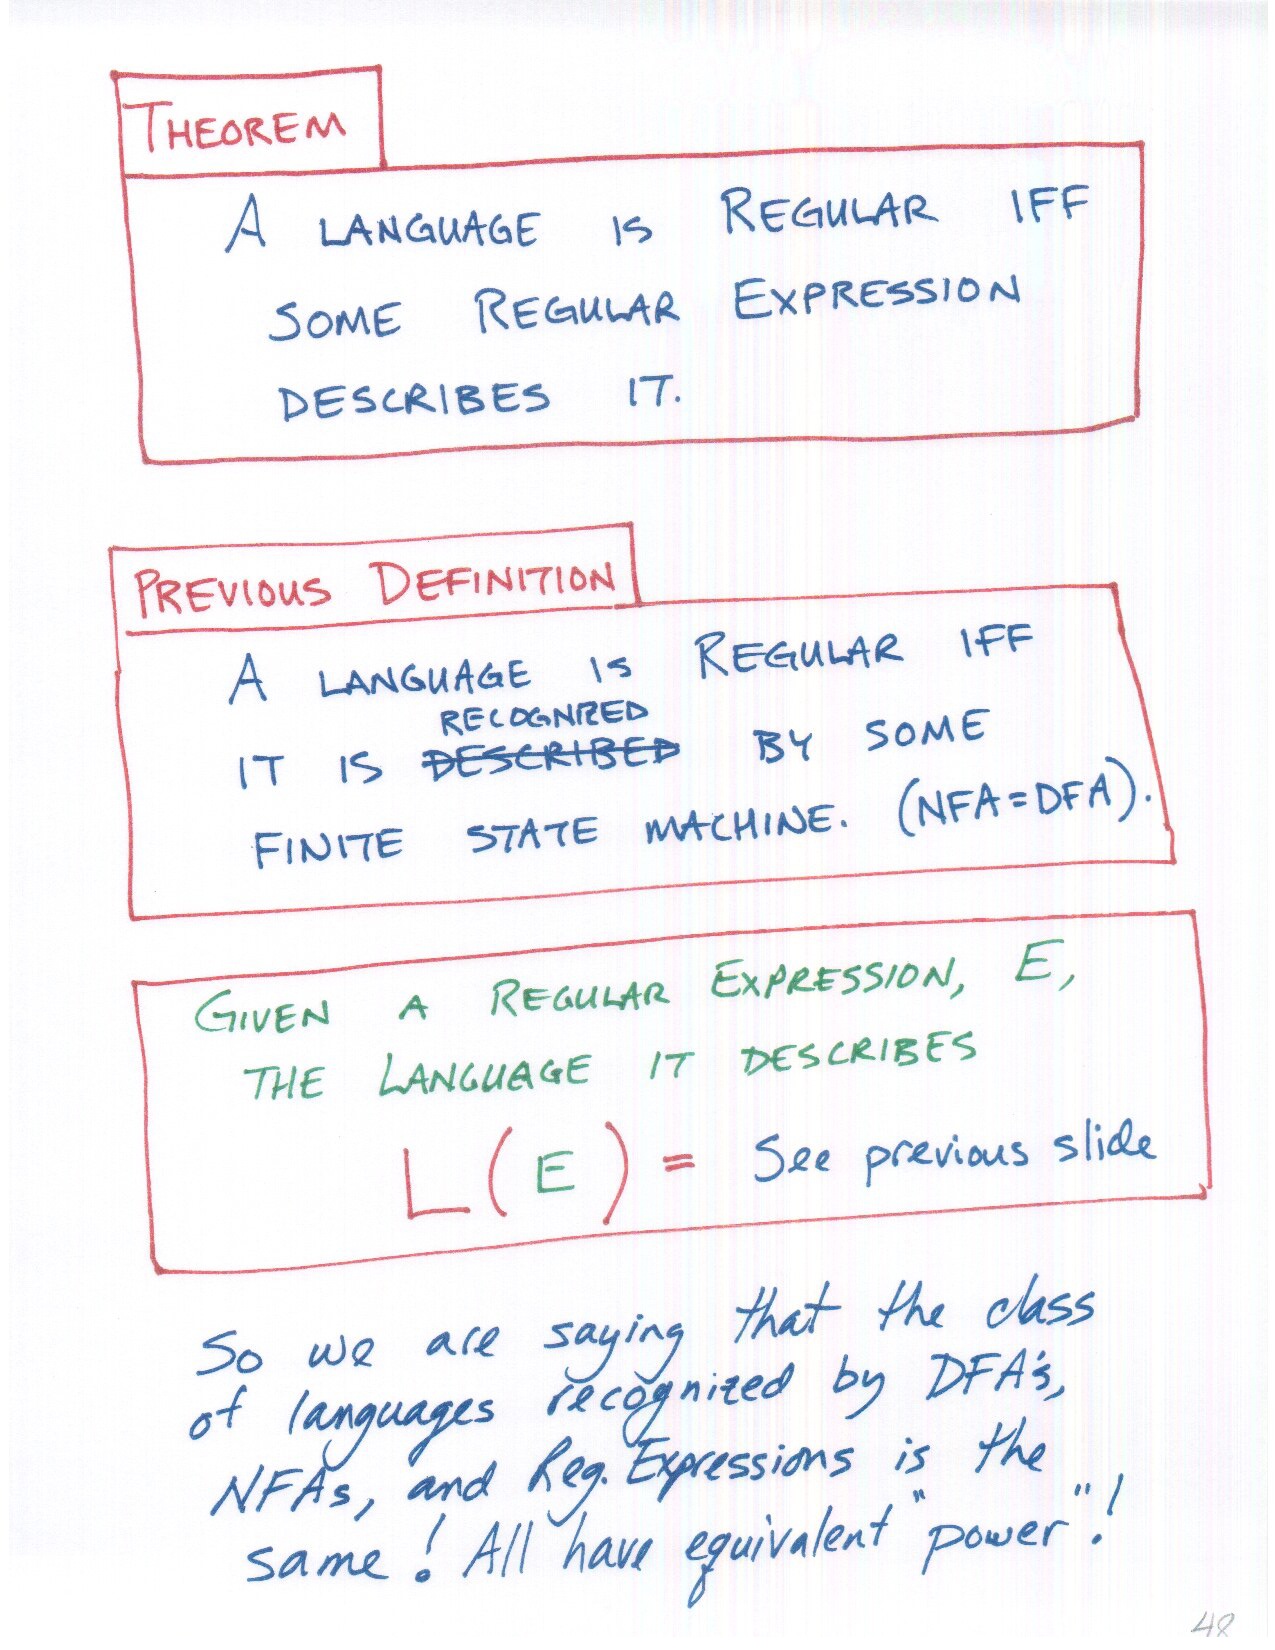 THEOREM
A LANGUAGE IS REGULAR IFF
SOME REGULAR EXPRESSION
DESCRIBES IT.
PREVIOUS DEFINITION
A LANGUAGE IS REGULAR IFF
RECOGNIZED
IT IS DESCRIBED BY SOME
FINITE STATE MACHINE. (NFA=DFA).
GIVEN A REGULAR EXPRESSION, E,
THE LANGUAGE IT DESCRIBES
L(E) = See previous slide
So we are saying that the class
of languages recognized by DFA's,
NFAs, and Reg. Expressions is the
same! All have equivalent "power"!
48